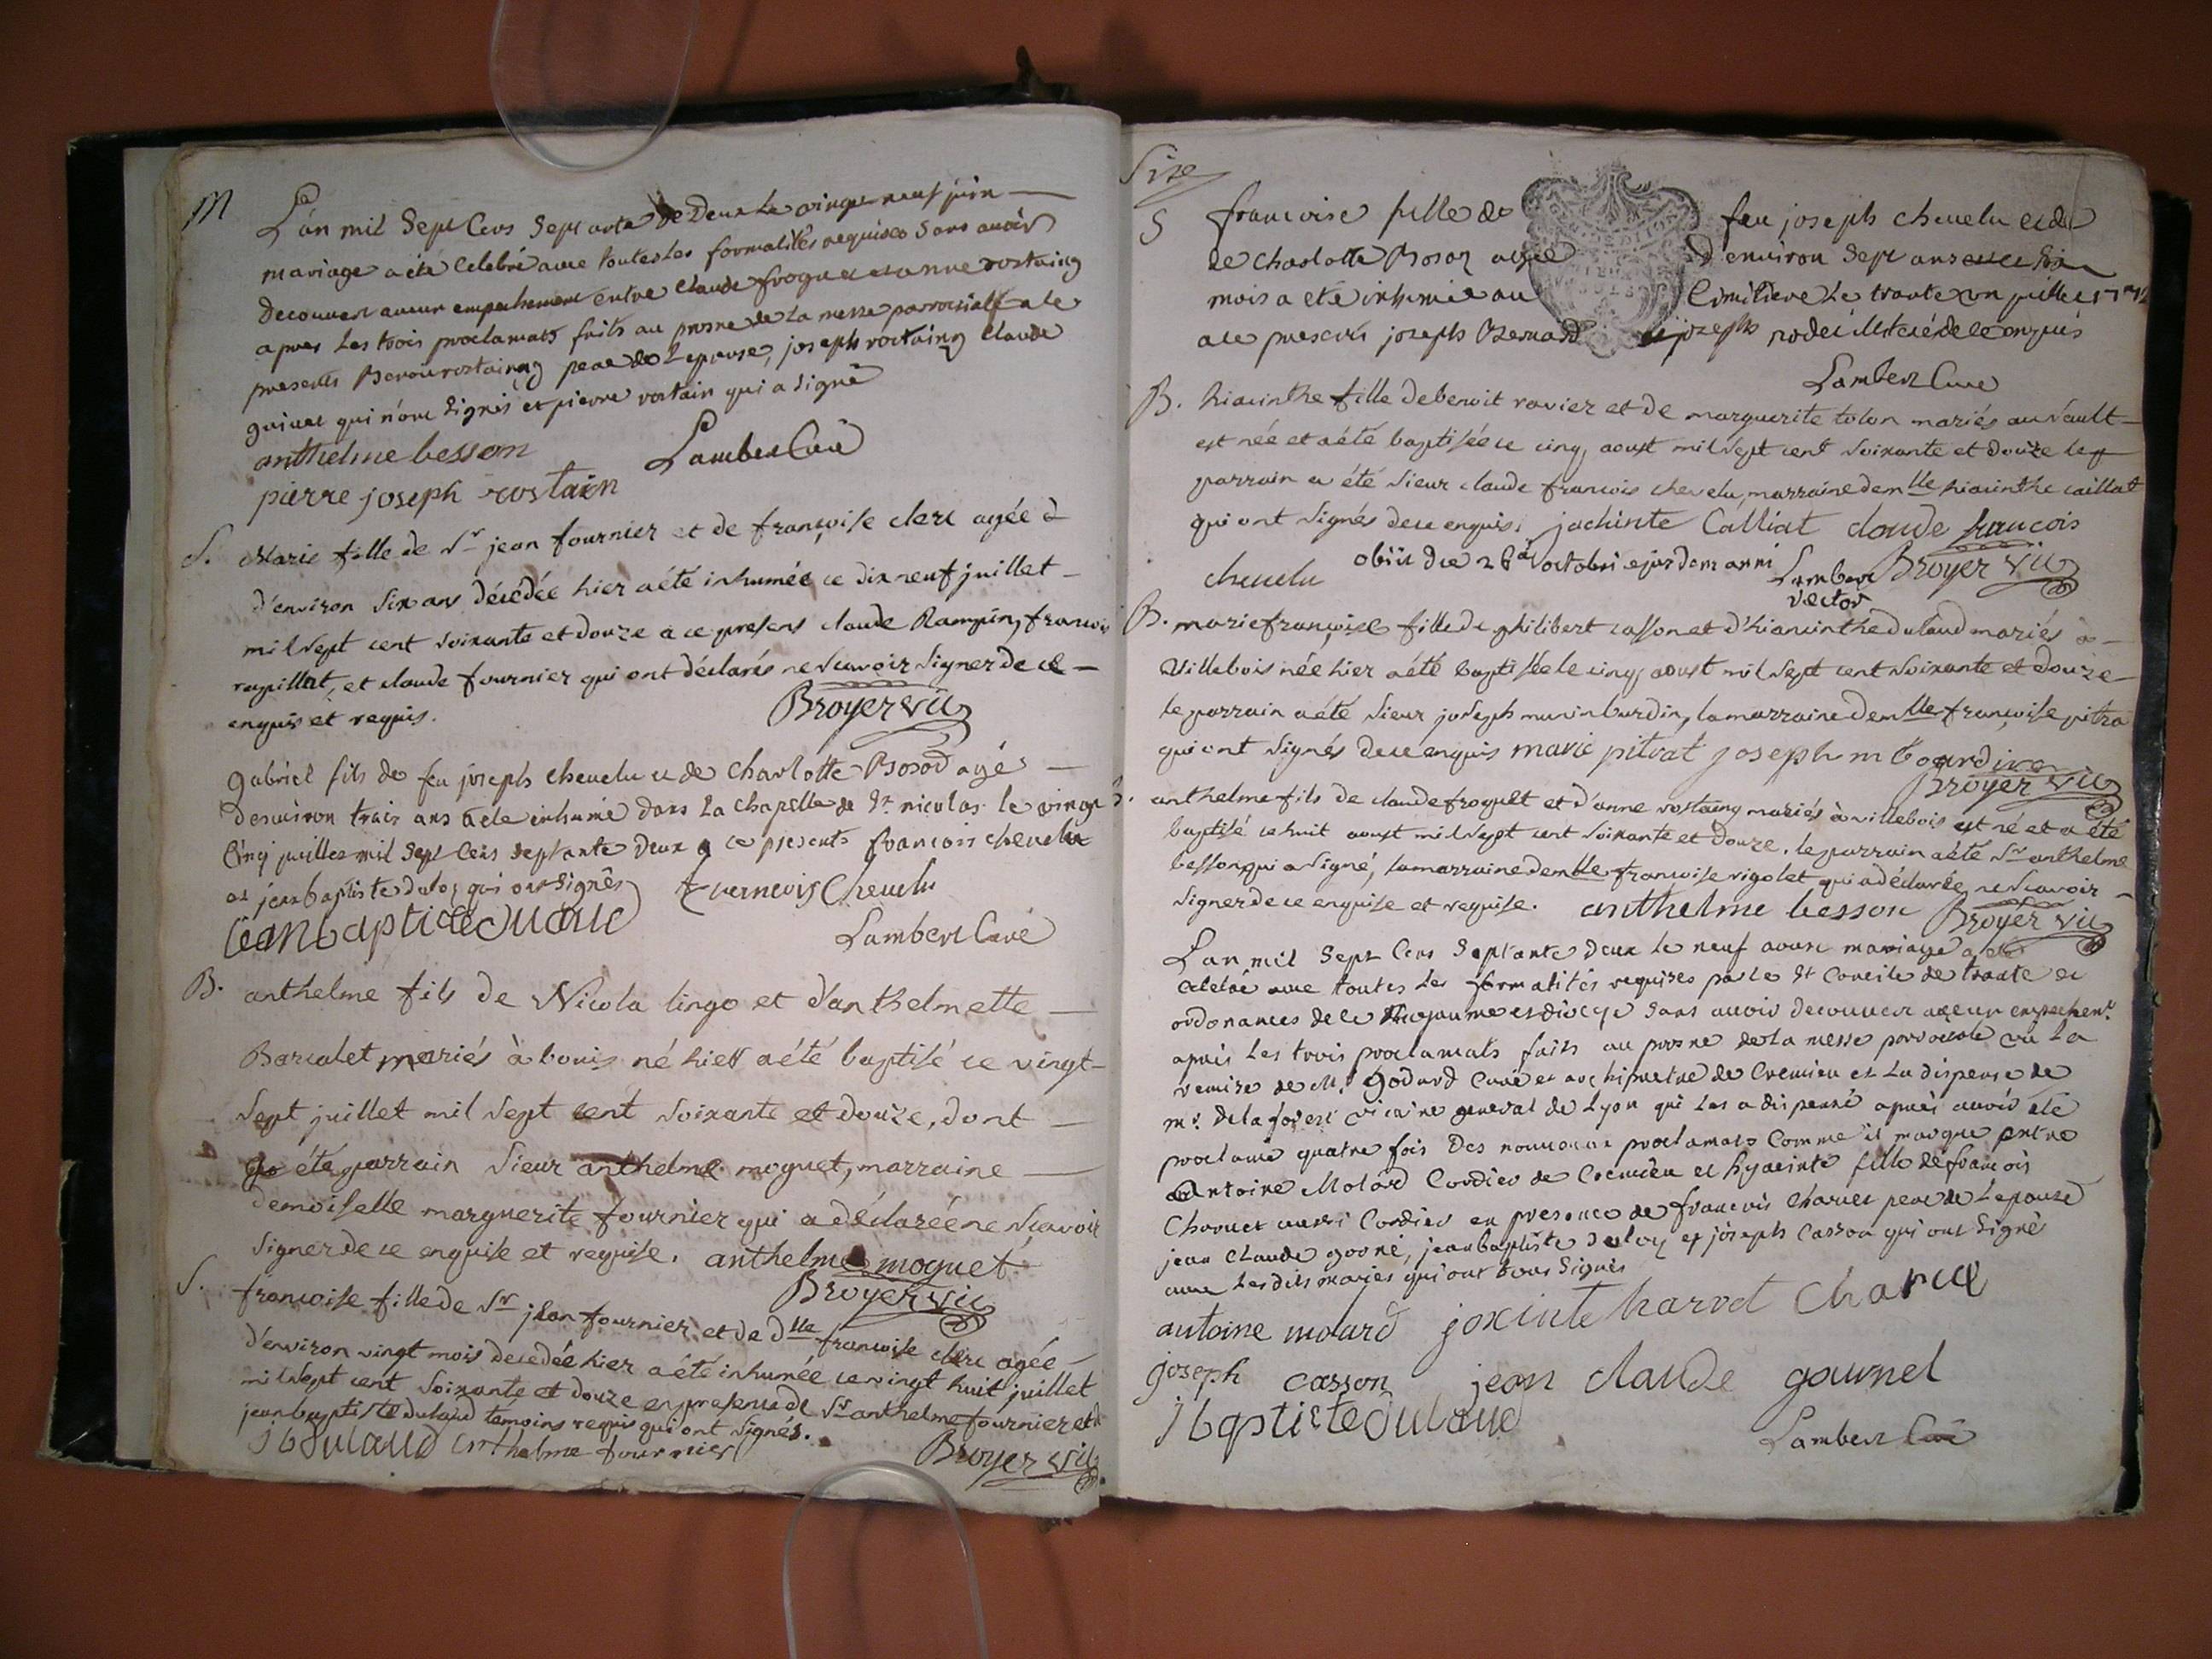 M
L'an mil Sept Cens Septante Deux Le vingt neuf juin
mariage a été Celebré avec toutes Les formalités requises Sans avoir
Decouvert aucun empechement entre Claude froguet et anne rostaing
apres Les trois proclamats faits au prosne de La messe parroissialle a ce
presents Benoit rostaing pere de Lepouse, joseph rostaing Claude
guinet qui n'ont Signés et pierre rostain qui a Signé
anthelme besson
Lambert Curé
pierre joseph rostain
S. Marie fille de Sr jean fournier et de françoise clerc agée d
d'environ Six ans décédée hier a été inhumée ce dix neuf juillet
mil sept cent soixante et douze a ce presens claude Rampin, francois
reypillat, et claude fournier qui ont déclarés ne scavoir signer de ce
enquis et requis.
Broyer vic
gabriel fils de feu joseph chevelu et de Charlotte Boson agé
Denviron trois ans a ete inhumé dans La chapelle de St nicolas le vingt
Cinq juillet mil Sept Cens septante Deux a ce presents francois chevelu
et jean baptiste dulos qui ont Signés
francois Chevelu
jean baptiste dulaud
Lambert Curé
B. anthelme fils de Nicola lingo et d'anthelmette
Barcalet mariés à bouis né hier a été baptisé ce vingt
Sept juillet mil sept cent soixante et douze, dont
a été parrain Sieur anthelme moguet, marraine
demoiselle marguerite fournier qui a déclarée ne scavoir
signer de ce enquise et requise. anthelme moguet
Broyer vic
S. francoise fille de Sr jean fournier et de dlle francoise clerc agée
d'environ vingt mois decedée hier a été inhumée ce vingt huit juillet
mil sept cent soixante et douze en presence de Sr anthelme fournier et de
jean baptiste dulaud temoins requis qui ont signés.
j b dulaud anthelme fournier
Broyer vic
Size
S francoise fille de feu joseph chevelu et de
de Charlotte Boson agée d'environ Sept ans
mois a eté inhumée au Cimitiere Le trante un juillet 1772
a ce presents joseph Bernard et joseph rodet illiteré de ce enquis
Lambert Curé
B. hiacinthe fille de benoit ravier et de marguerite tolon mariés au Sault
est née et a été baptisée ce cinq aoust mil sept cent soixante et douze le
parrain a été Sieur claude francois chevelu, marraine demlle hiacinthe caillat
qui ont signés de ce enquis. jachinte Calliat claude francois
chevelu obiit die 28a octobri ejusdem anni Lambert rector Broyer vic
B. marie françoise fille de philibert casson et d'hiacinthe dulaud mariés à
Villebois née hier a été baptisée le cinq aoust mil sept cent soixante et douze
le parrain a été Sieur joseph murin burdin, la marraine demlle françoise pitra
qui ont signés de ce enquis marie pitrat joseph m bourdin
Broyer vic
B. anthelme fils de claude froguet et d'anne rostaing mariés à villebois est né et a été
baptisé ce huit aoust mil sept cent soixante et douze. le parrain a été Sr anthelme
besson qui a signé, la marraine demlle francoise rigolet qui a déclarée ne scavoir
signer de ce enquise et requise. anthelme besson Broyer vic
L'an mil Sept Cens Septante Deux le neuf aoust mariage a été
celebré avec toutes Les formalités requises par Le St Concile de trante et
ordonances de ce Royaume et diocese Sans avoir decouvert aucun empechent
apres Les trois proclamats faits au prosne de La messe parroissiale vu La
remise de Mr godard Curé et archipretre de Cremieu et La dispense de
mr Delaforest vicaire general de Lyon qui Les a dispensé apres avoir eté
proclamé quatre fois Des nouveaux proclamats Comme il marque entre
antoine Molard Cordier de Cremieu et hyacinte fille de francois
Charvet aussi Cordier en presence de francois Charvet pere de Lepouse
jean Claude gorné, jean baptiste duloy et joseph Casson qui ont Signé
avec Lesdits mariés qui ont tous Signés
antoine molard joxinte harvet Charvet
joseph casson jean claude gournel
j baptiste dulaud
Lambert Curé